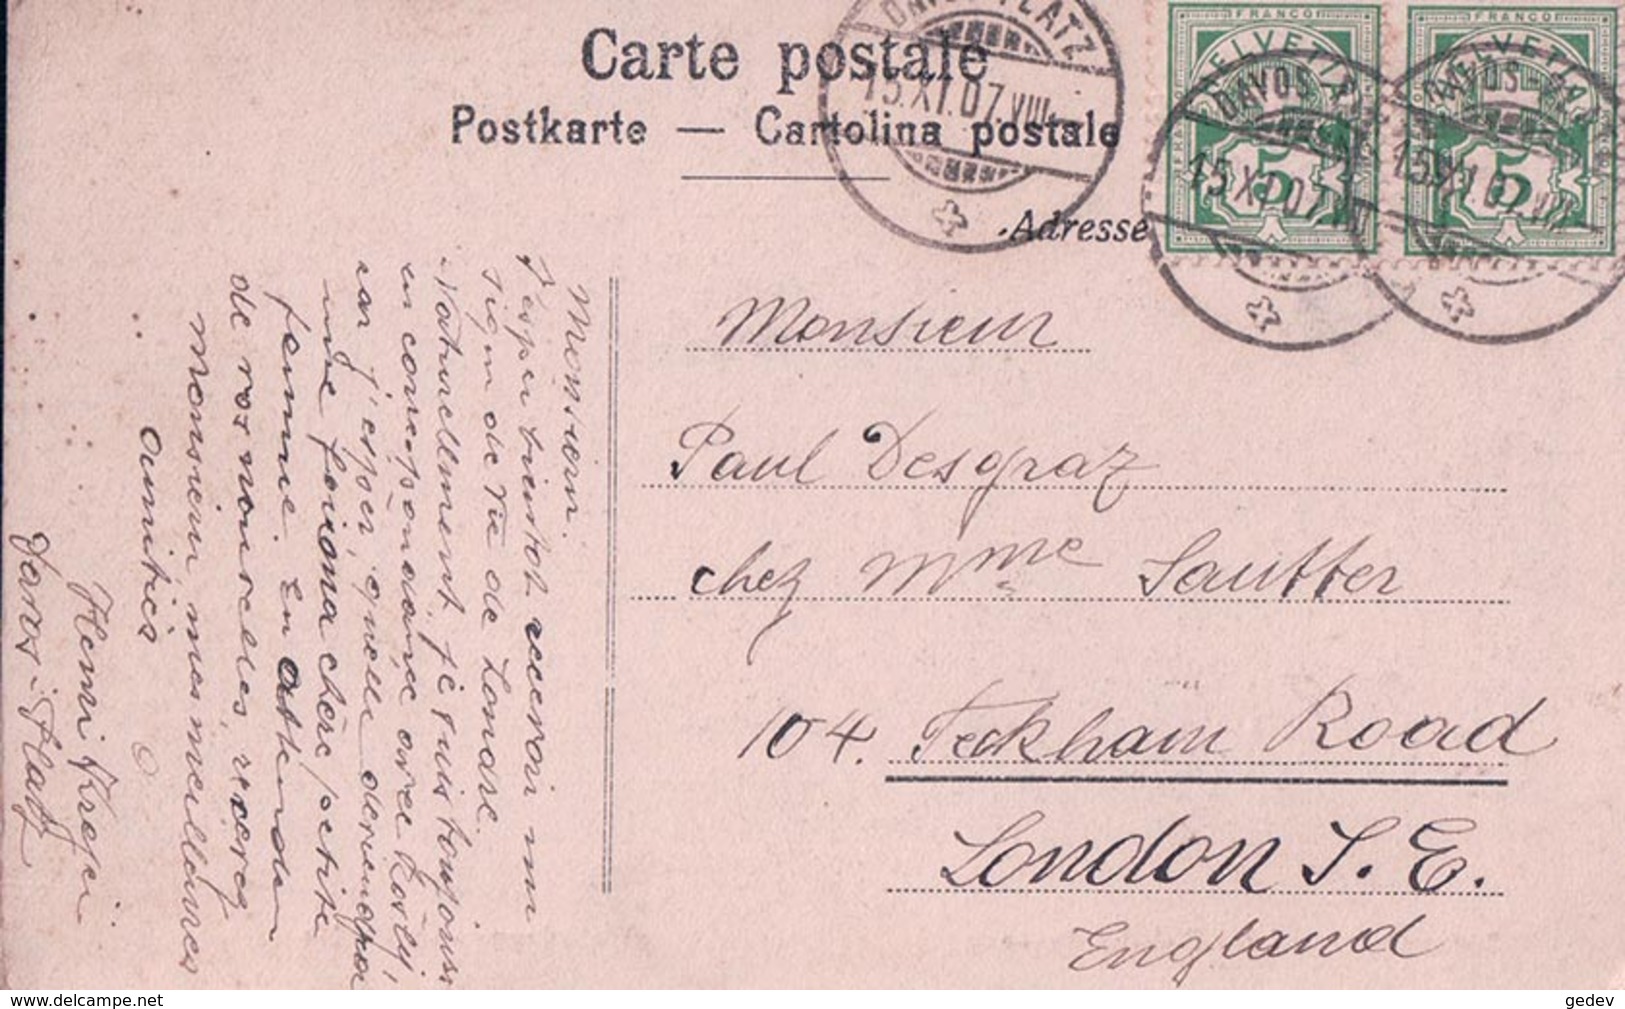 Carte postale
Postkarte — Cartolina postale
Adresse
DAVOS-PLATZ
15.XI.07.VIII
FRANCO
HELVETIA
5
DAVOS-PL
15.XI.07.VIII
FRANCO
HELVETIA
5
DAVOS-PL
15.XI.07.VIII
Monsieur
Paul Desgraz
chez Mme Sautter
104. Peckham Road
London S.E.
England
Monsieur.
J'esper bientot recevoir un
sign de vie de Londre.
Naturellement je suis toujours
en correspondance avec
car j'esper, qu'elle
une foi ma chère petite
femme. En attenden
de vos nouvelles, recereg
monsieur mes meilleures
amitiés
Henri
Davos-Platz
gedev
www.delcampe.net